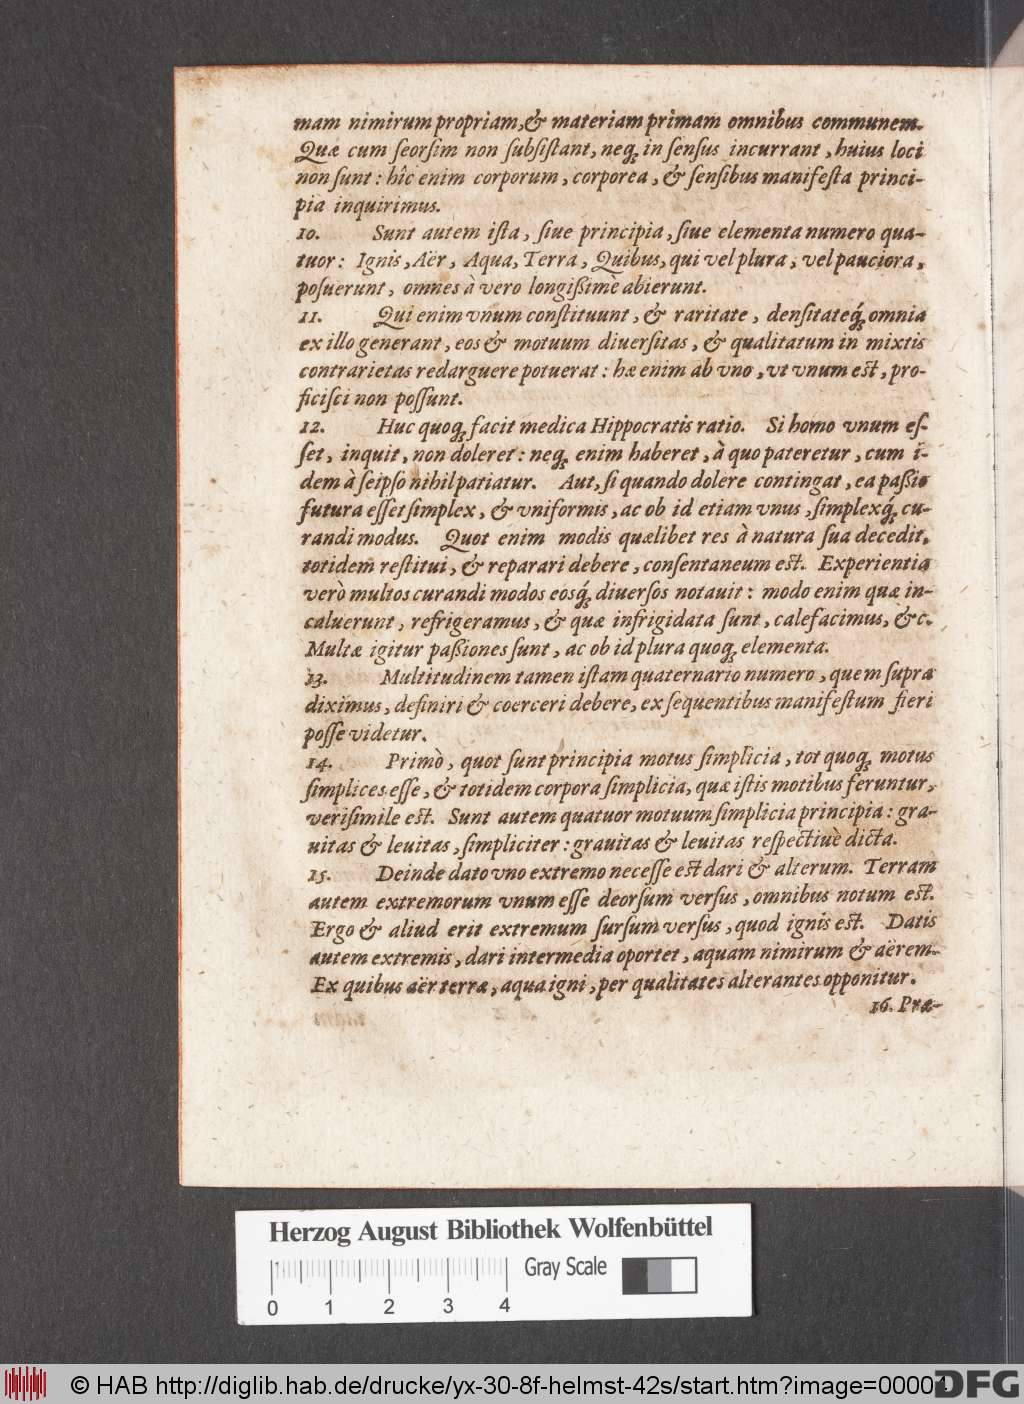 mam nimirum propriam, & materiam primam omnibus communem.
Quæ cum ſeorſim non ſubſiſtant, neq; in ſenſus incurrant, huius loci
non ſunt: hîc enim corporum, corporea, & ſenſibus manifeſta princi-
pia inquirimus.
10. Sunt autem iſta, ſiue principia, ſiue elementa numero qua-
tuor: Ignis, Aër, Aqua, Terra, Quibus, qui vel plura, vel pauciora,
poſuerunt, omnes à vero longißimè abierunt.
11. Qui enim vnum conſtituunt, & raritate, denſitateq́; omnia
ex illo generant, eos & motuum diuerſitas, & qualitatum in mixtis
contrarietas redarguere potuerat: hæ enim ab vno, vt vnum eſt, pro-
ficiſci non poſſunt.
12. Huc quoq; facit medica Hippocratis ratio. Si homo vnum eſ-
ſet, inquit, non doleret: neq; enim haberet, à quo pateretur, cum i-
dem à ſeipſo nihil patiatur. Aut, ſi quando dolere contingat, ea paßio
futura eſſet ſimplex, & vniformis, ac ob id etiam vnus, ſimplexq́; cu-
randi modus. Quot enim modis quælibet res à natura ſua decedit,
totidem reſtitui, & reparari debere, conſentaneum eſt. Experientia
verò multos curandi modos eosq́; diuerſos notauit: modo enim quæ in-
caluerunt, refrigeramus, & quæ infrigidata ſunt, calefacimus, &c.
Multæ igitur paßiones ſunt, ac ob id plura quoq; elementa.
13. Multitudinem tamen iſtam quaternario numero, quem ſupra
diximus, definiri & coerceri debere, ex ſequentibus manifeſtum fieri
poſſe videtur.
14. Primò, quot ſunt principia motus ſimplicia, tot quoq; motus
ſimplices eſſe, & totidem corpora ſimplicia, quæ iſtis motibus feruntur,
veriſimile eſt. Sunt autem quatuor motuum ſimplicia principia: gra-
uitas & leuitas, ſimpliciter: grauitas & leuitas reſpectiuè dicta.
15. Deinde dato vno extremo neceſſe eſt dari & alterum. Terram
autem extremorum vnum eſſe deorſum verſus, omnibus notum eſt.
Ergo & aliud erit extremum ſurſum verſus, quod ignis eſt. Datis
autem extremis, dari intermedia oportet, aquam nimirum & aërem.
Ex quibus aër terræ, aqua igni, per qualitates alterantes opponitur.
16. Præ-
Herzog August Bibliothek Wolfenbüttel
Gray Scale
0 1 2 3 4
© HAB http://diglib.hab.de/drucke/yx-30-8f-helmst-42s/start.htm?image=00004
DFG